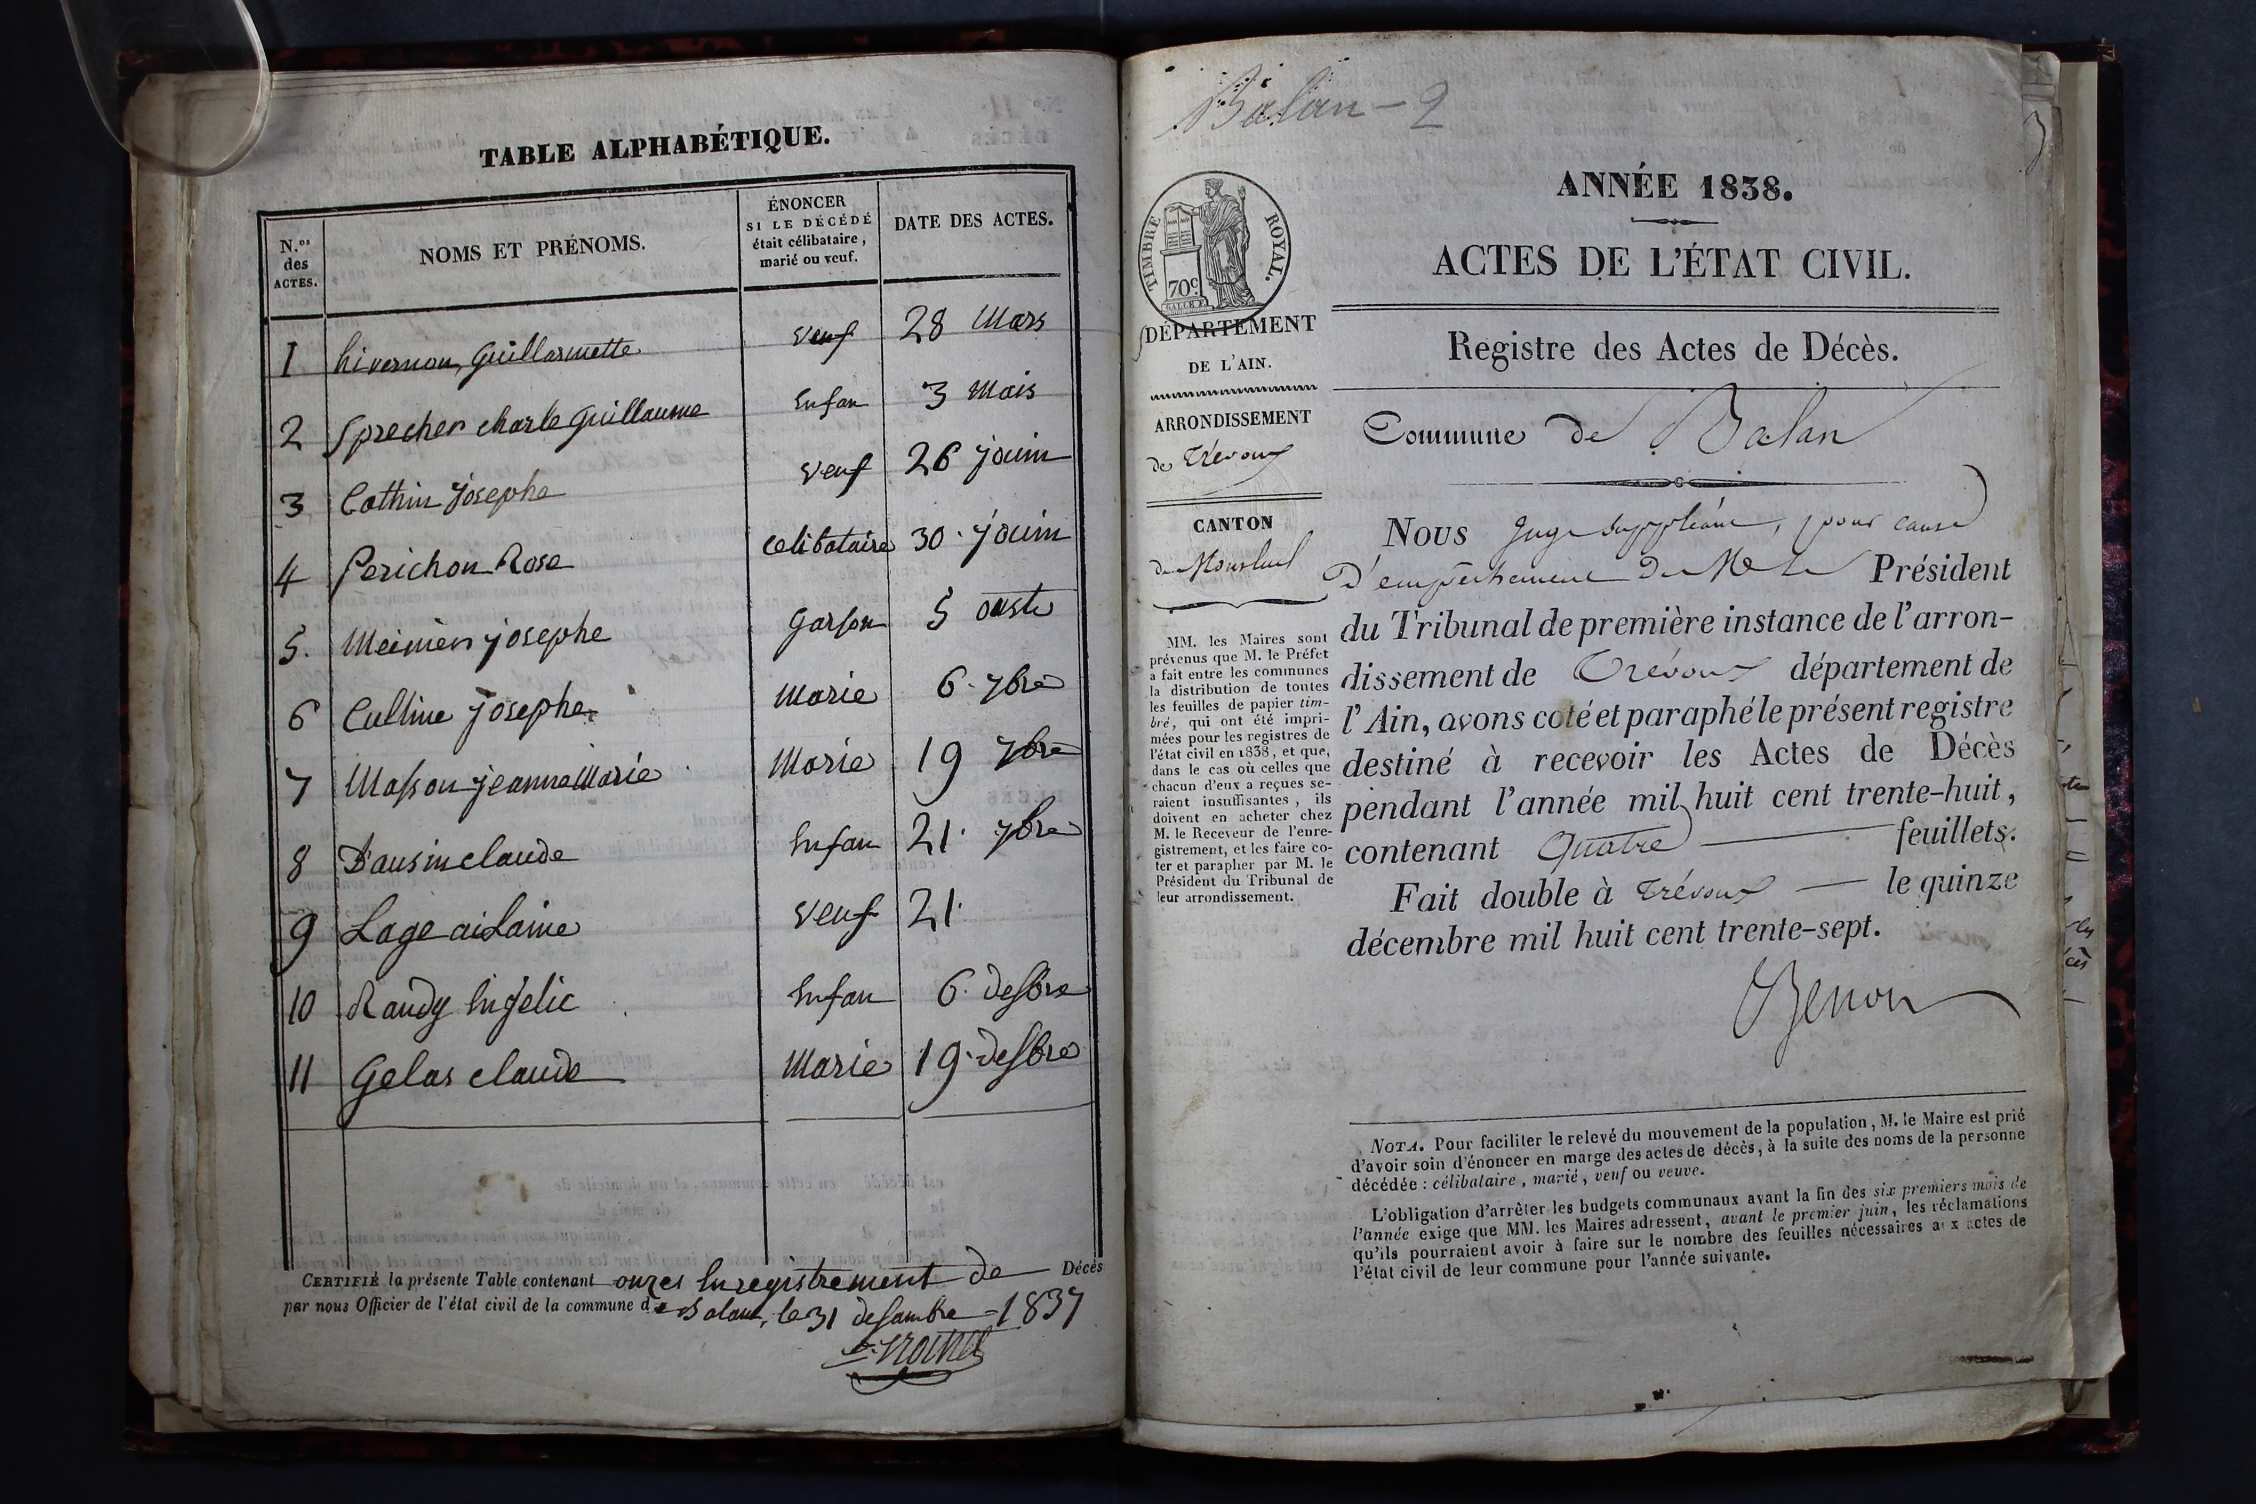 TABLE ALPHABÉTIQUE.
N.os des ACTES.
NOMS ET PRÉNOMS.
ÉNONCER
SI LE DÉCÉDÉ
était célibataire,
marié ou veuf.
DATE DES ACTES.
1 hivernon Guillarmette veuf 28 Mars
2 Sprecher charle Guillaume Enfan 3 Mais
3 Cothin josephe veuf 26 jouin
4 Perichon Rose celibataire 30. jouin
5. Meinier josephe garson 5 ouste
6 Culline josephe Marie 6. 7bre
7 Masson jeanne Marie Marie 19 7bre
8 Dausin claude Enfan 21. 7bre
9 Lage veuf 21.
10 Raudy Enfan 6. desbre
11 Gelas claude Marie 19. desbre
CERTIFIÉ la présente Table contenant onzes Enregistrement de Décès
par nous Officier de l'état civil de la commune de Balan, le 31 desambre 1837
Balan - 2
ANNÉE 1838.
ACTES DE L'ÉTAT CIVIL.
Registre des Actes de Décès.
Commune de Balan
TIMBRE ROYAL.
70c
DÉPARTEMENT
DE L'AIN.
ARRONDISSEMENT
de Trévoux
CANTON
de Montluel
MM. les Maires sont
prévenus que M. le Préfet
a fait entre les communes
la distribution de toutes
les feuilles de papier tim-
bré, qui ont été impri-
mées pour les registres de
l'état civil en 1838, et que,
dans le cas où celles que
chacun d'eux a reçues se-
raient insuffisantes, ils
doivent en acheter chez
M. le Receveur de l'enre-
gistrement, et les faire co-
ter et parapher par M. le
Président du Tribunal de
leur arrondissement.
Nous Juge suppléant, pour cause
D'empêchement de Mr le Président
du Tribunal de première instance de l'arron-
dissement de Trévoux département de
l'Ain, avons coté et paraphé le présent registre
destiné à recevoir les Actes de Décès
pendant l'année mil huit cent trente-huit,
contenant Quatre feuillets.
Fait double à Trévoux le quinze
décembre mil huit cent trente-sept.
NOTA. Pour faciliter le relevé du mouvement de la population, M. le Maire est prié
d'avoir soin d'énoncer en marge des actes de décès, à la suite des noms de la personne
décédée : célibataire, marié, veuf ou veuve.
L'obligation d'arrêter les budgets communaux avant la fin des six premiers mois de
l'année exige que MM. les Maires adressent, avant le premier juin, les réclamations
qu'ils pourraient avoir à faire sur le nombre des feuilles nécessaires aux actes de
l'état civil de leur commune pour l'année suivante.